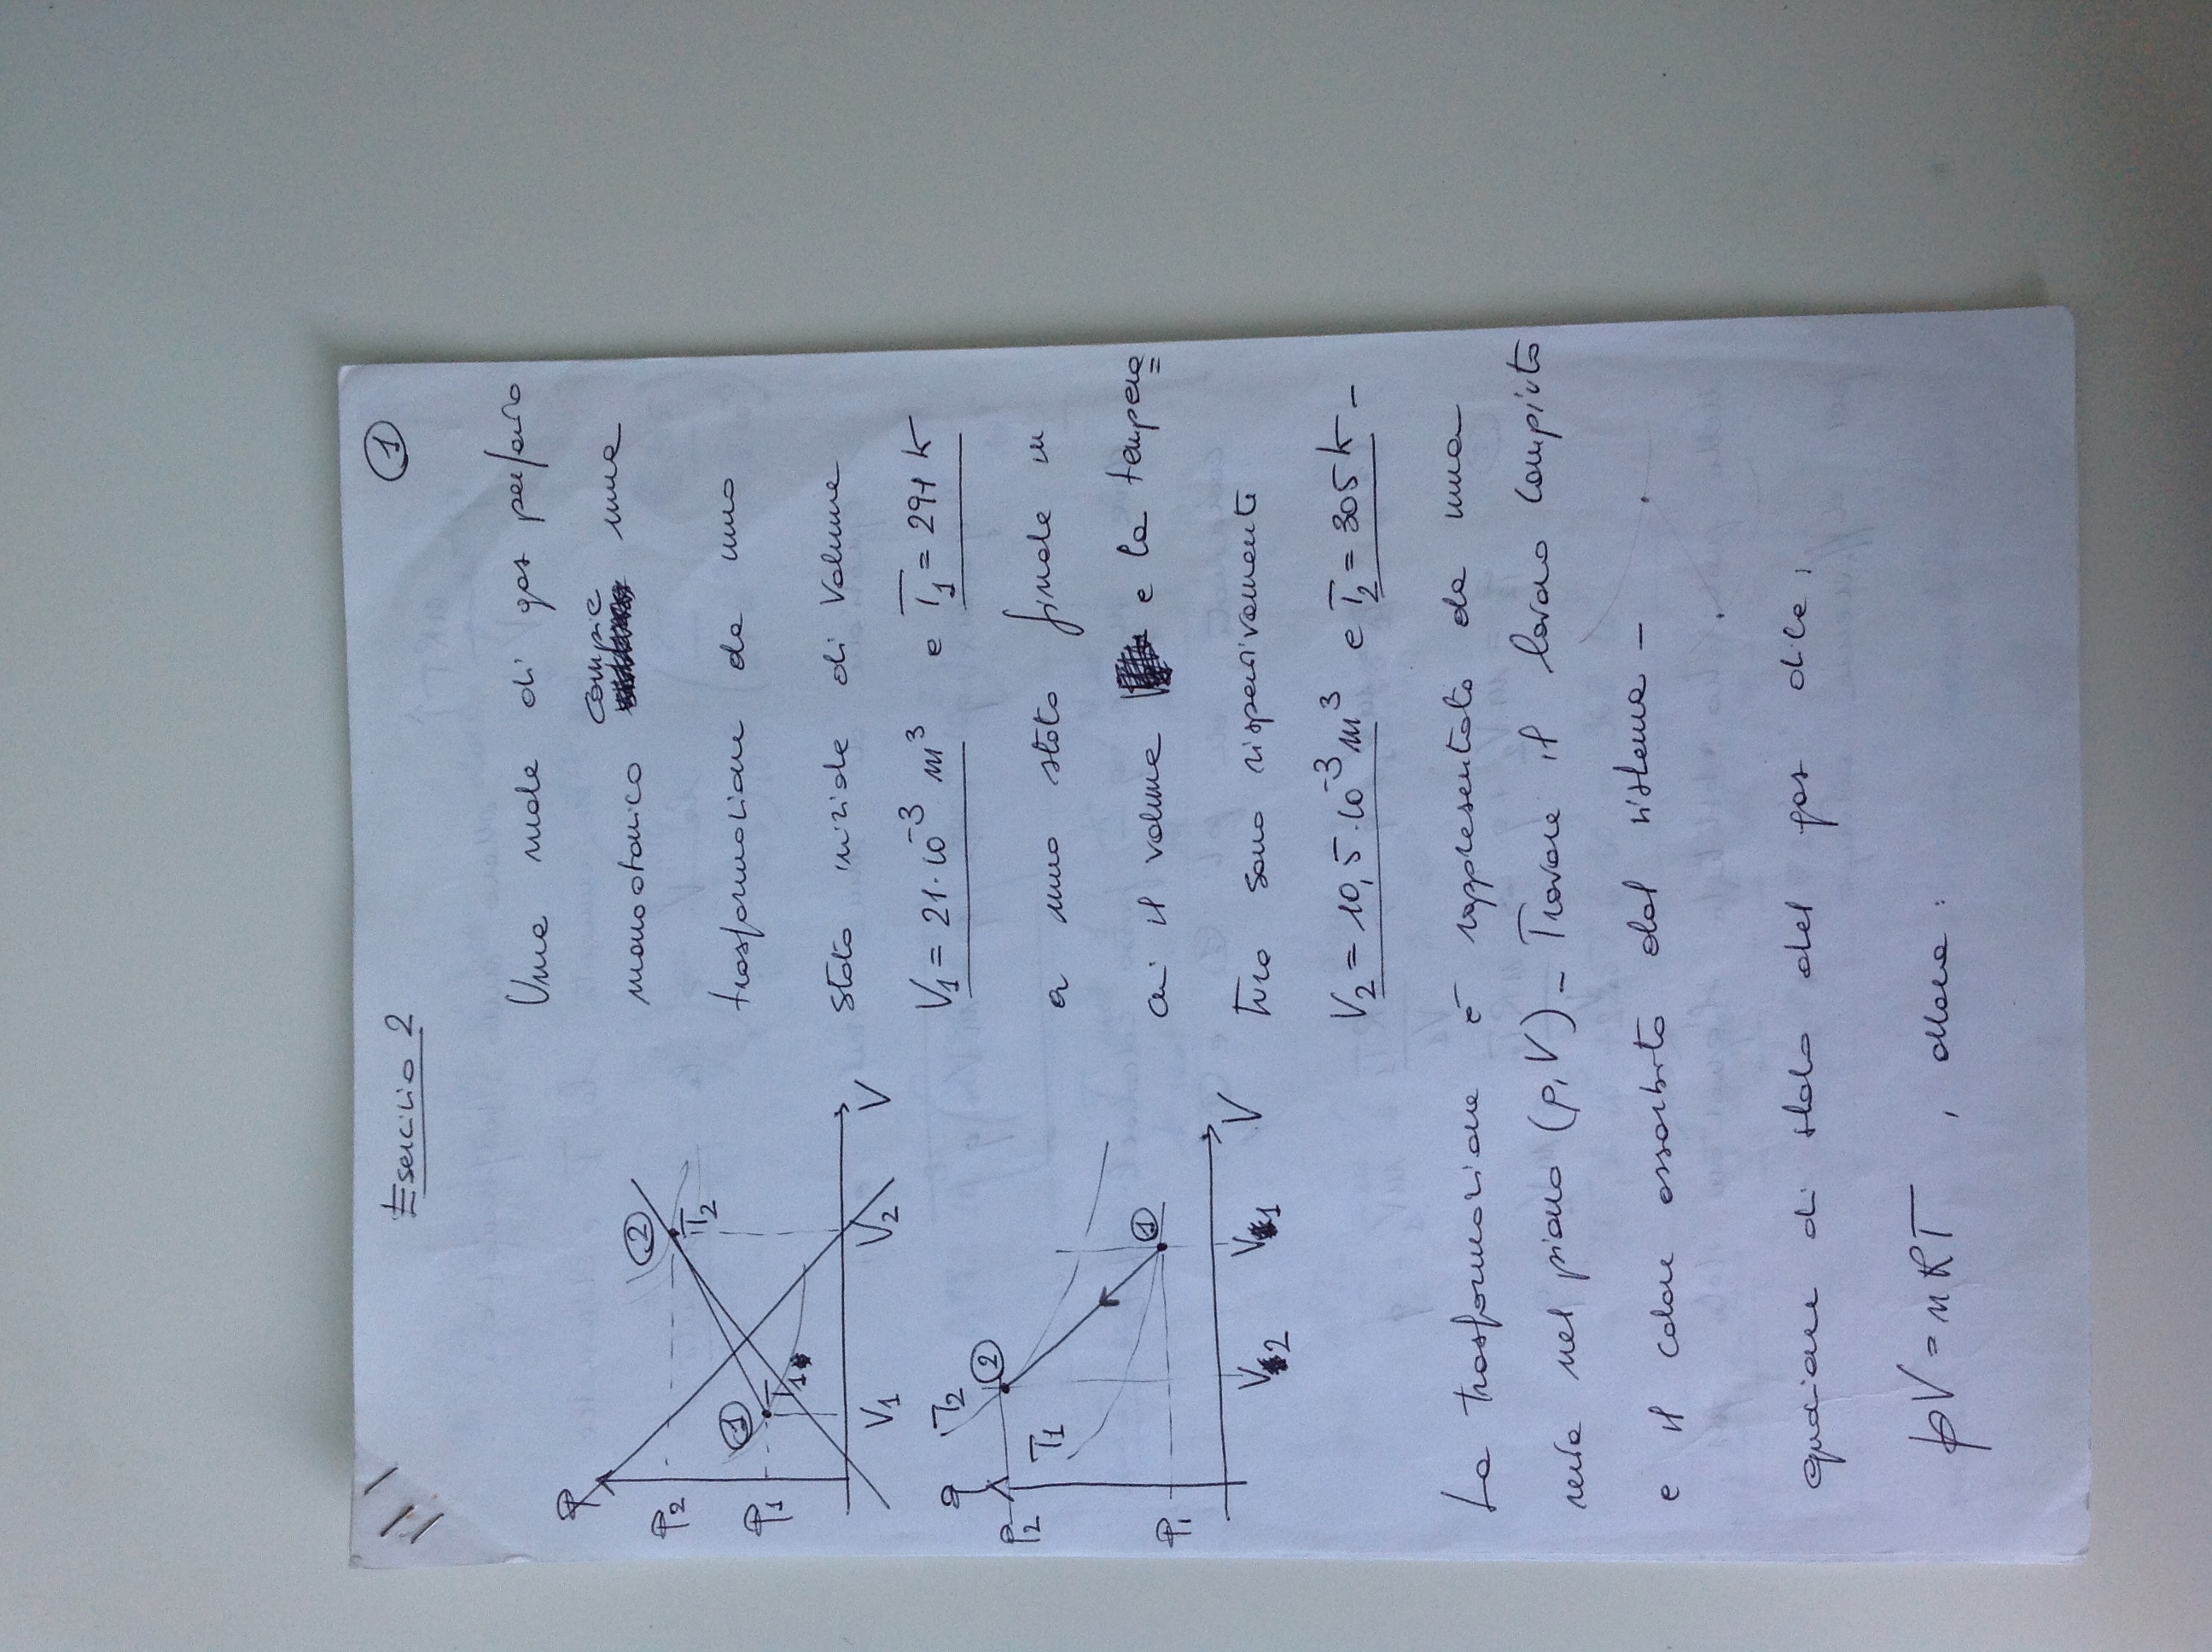 Esercizio 2
1
Una mole di gas perfetto
monoatomico compie una
trasformazione da uno
stato iniziale di volume
V₁ = 21·10⁻³ m³ e T₁ = 291 K
a uno stato finale in
cui il volume e la tempera=
tura sono rispettivamente
V₂ = 10,5·10⁻³ m³ e T₂ = 305 K –
La trasformazione è rappresentata da una
retta nel piano (p,V) – Trovare il lavoro compiuto
e il calore assorbito dal sistema –
equazione di stato del gas dice,
pV = nRT , allora :
P
P₂
P₁
1
T₁
2
T₂
V₁
V₂
V
P
P₂
P₁
T₂
2
T₁
1
V₂
V₁
V